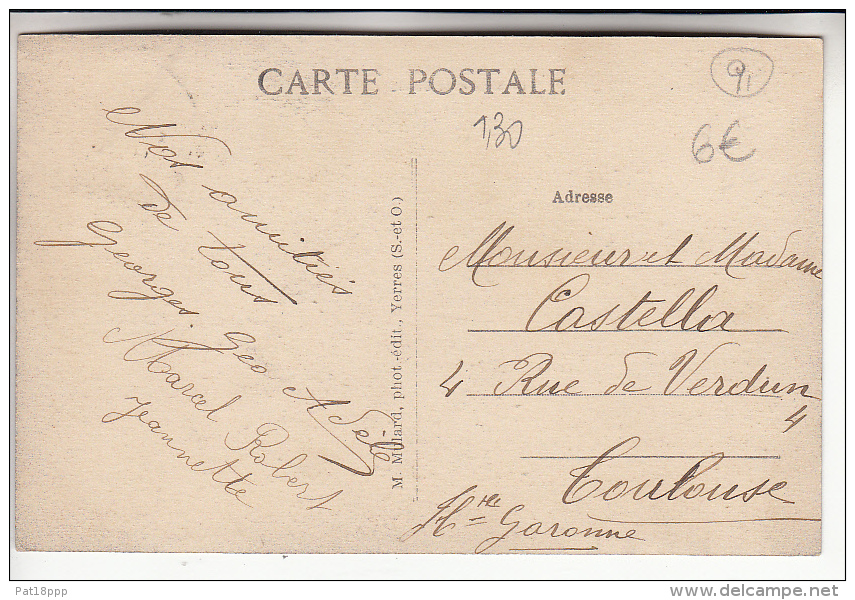 CARTE POSTALE
91
130
6€
Nos amitiés
de tous
Georges Geo Adèle
Marcel Robert
Jeannette
M. Mulard, phot.-édit., Yerres (S.-et O.)
Adresse
Monsieur et Madame
Castella
4 Rue de Verdun
4
Toulouse
Hte Garonne
Pat18ppp
delcampe.net